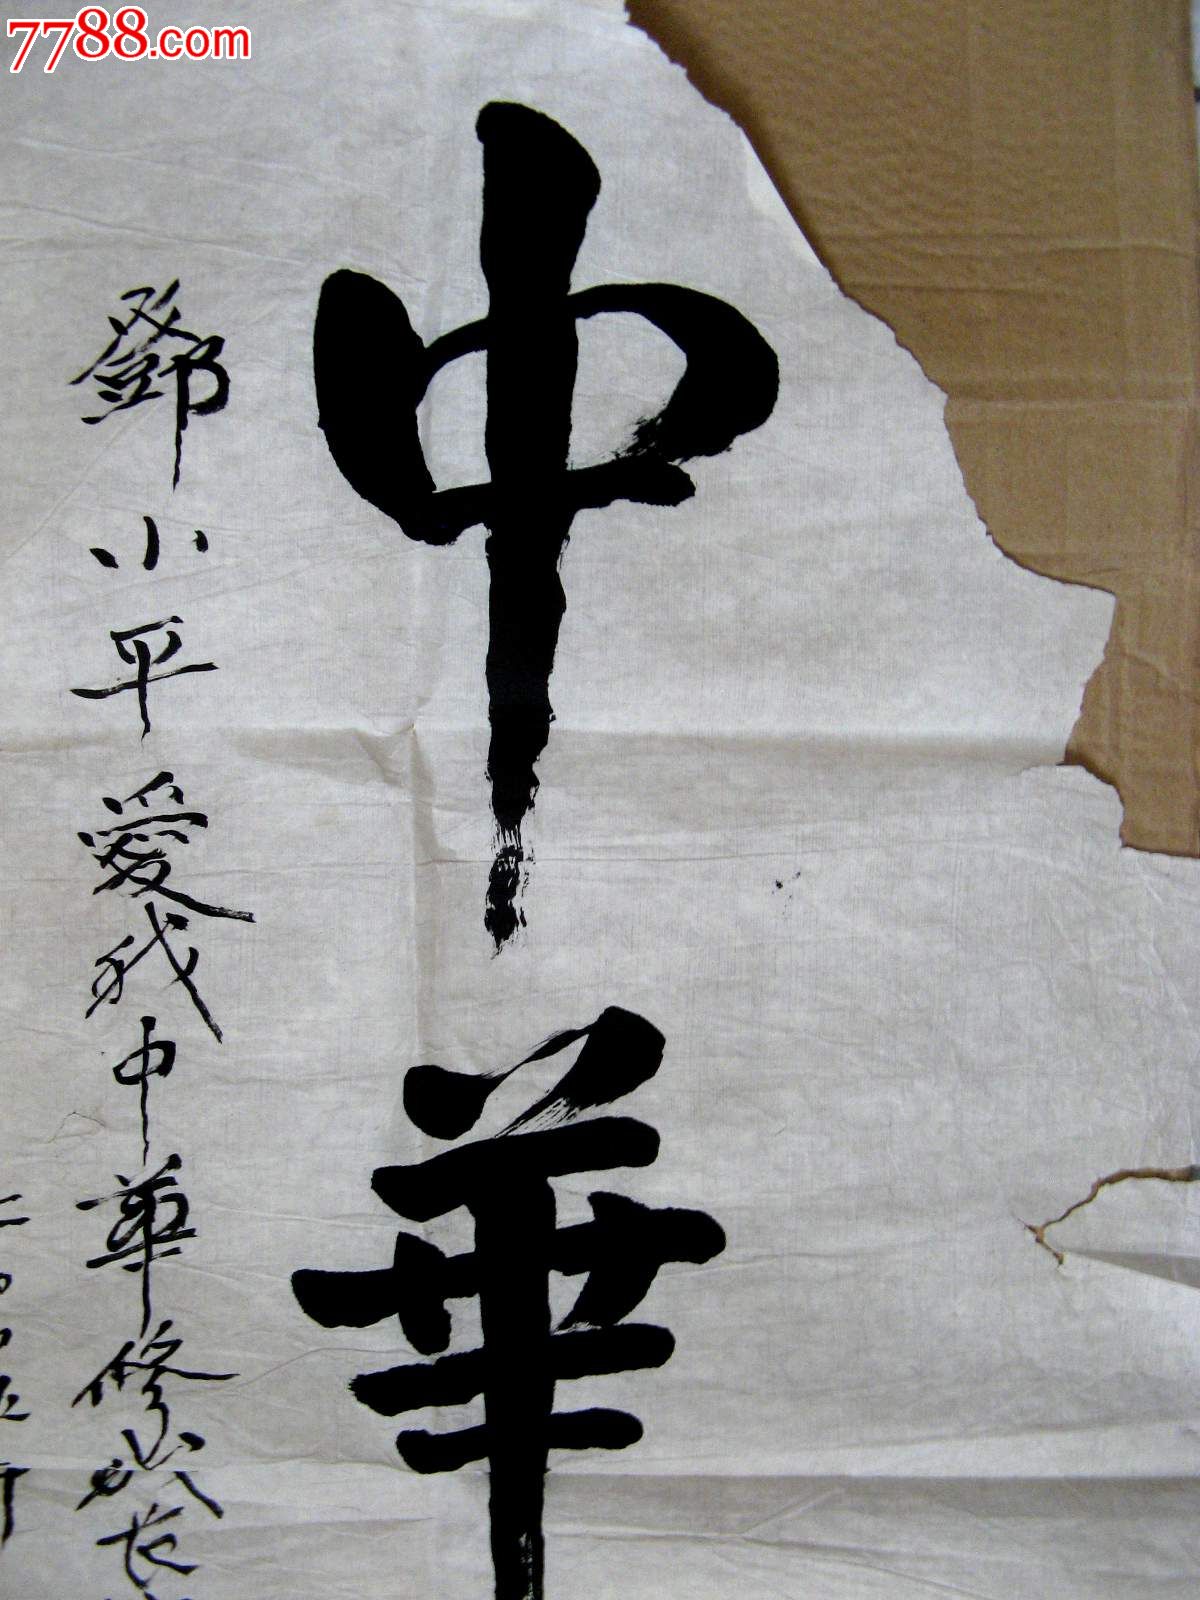 7788.com
中華
鄧小平愛我中華修我長